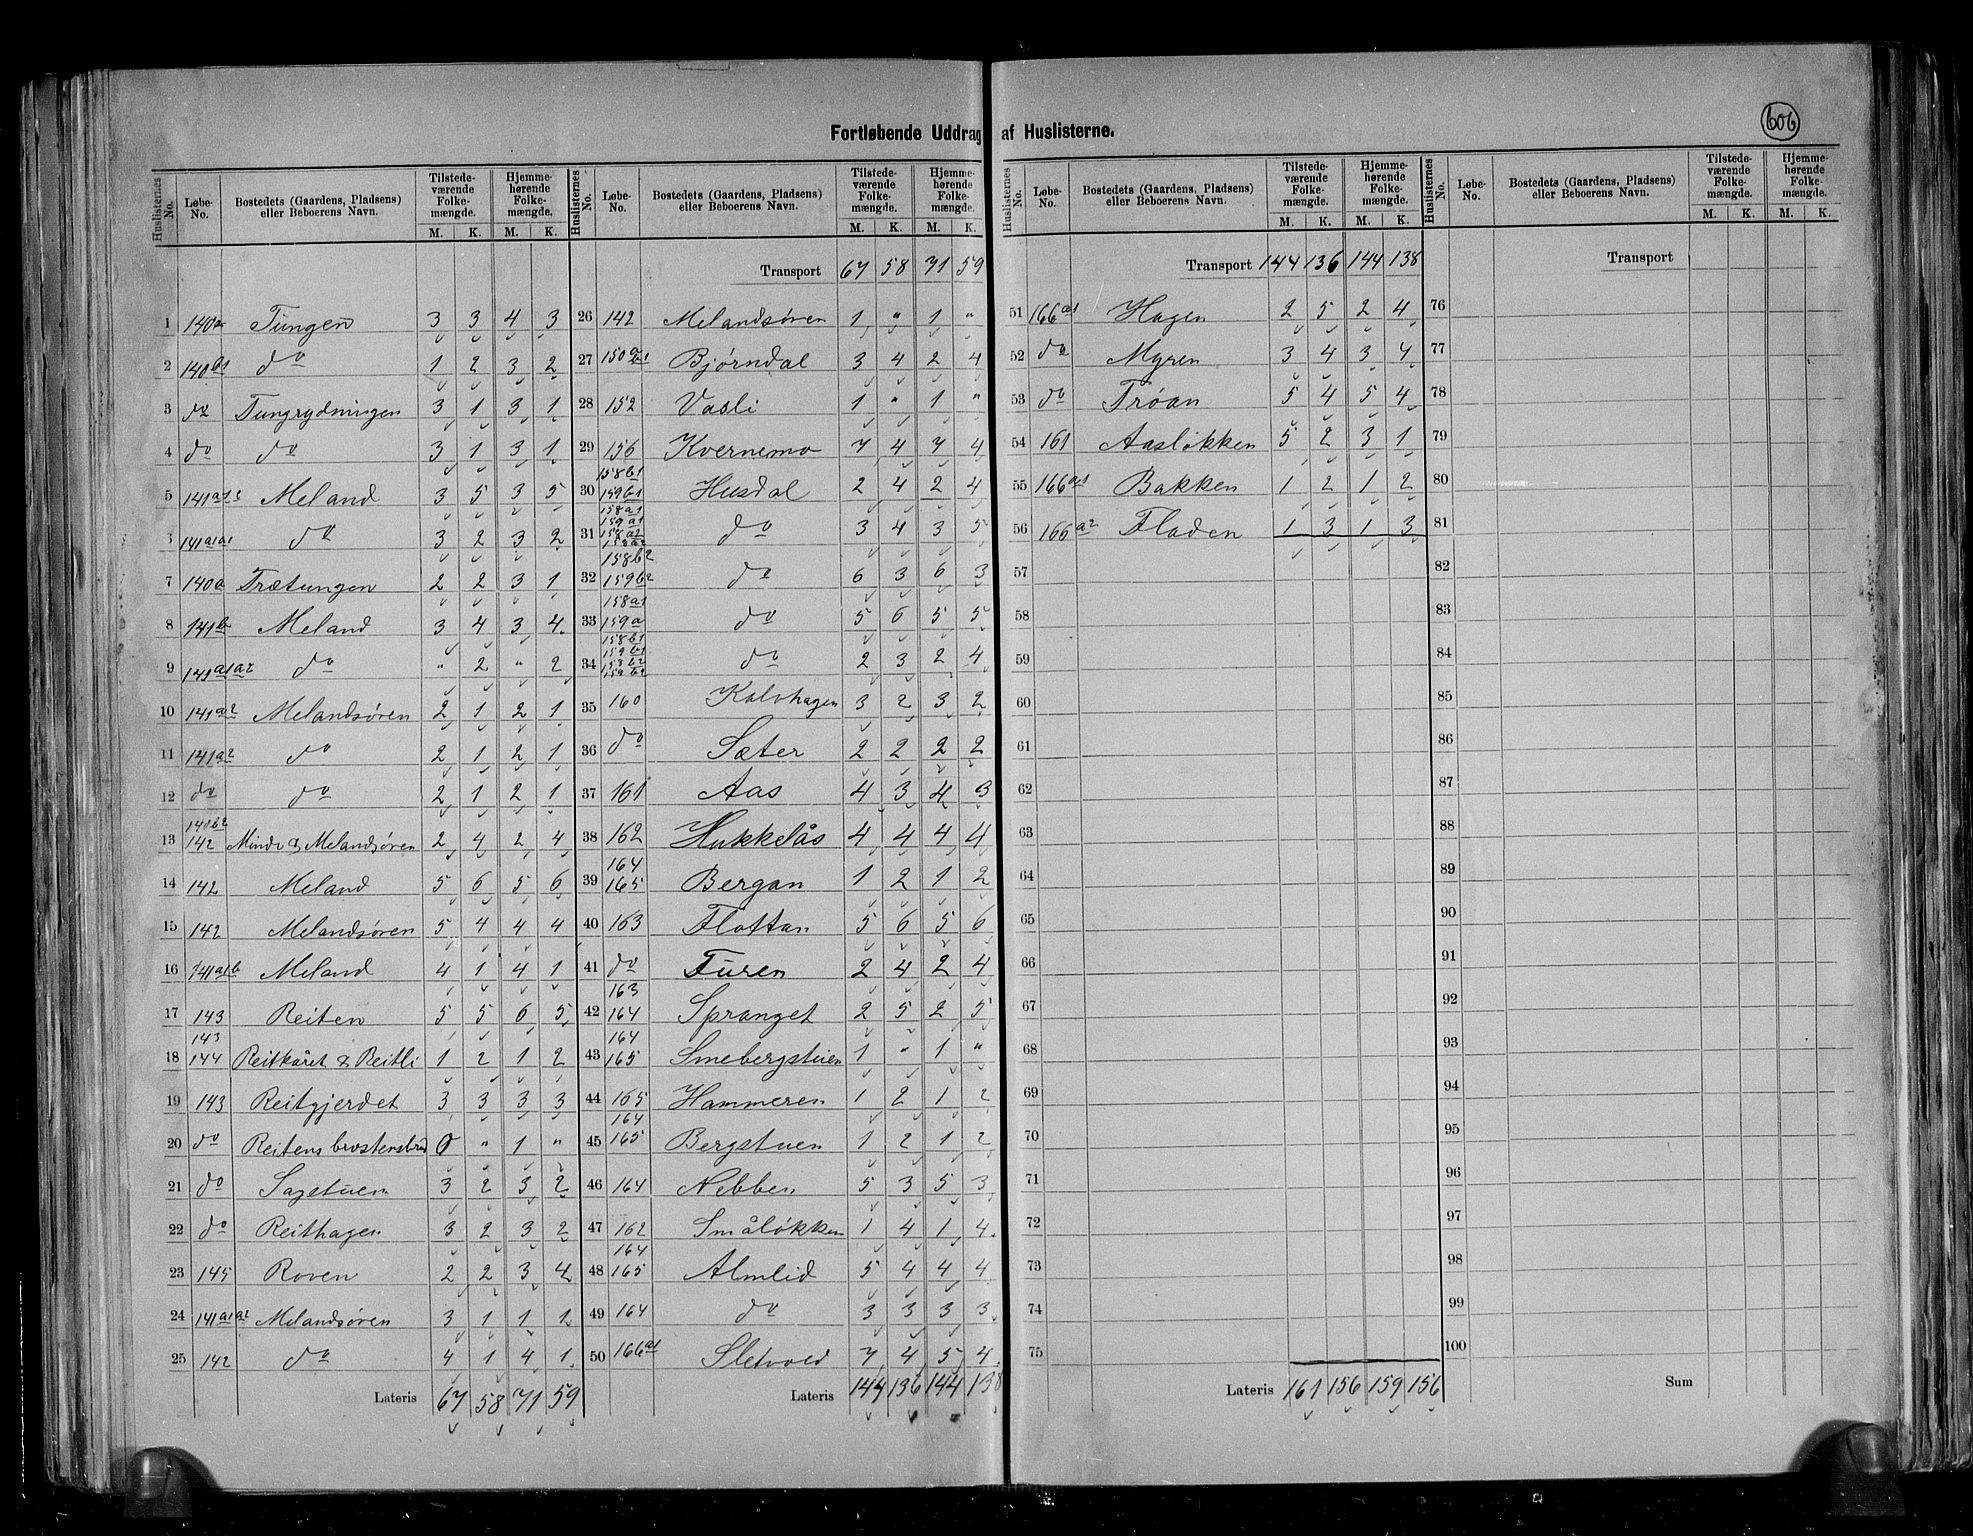 606
Fortløbende Uddrag af Huslisterne.
Huslisternes No. Løbe-No. Bostedets (Gaardens, Pladsens) eller Beboerens Navn. Tilstedeværende Folkemængde. M. K. Hjemmehørende Folkemængde. M. K.
1 140a Tungen 3 3 4 3
2 140b1 do 1 2 3 2
3 do Tungrydningen 3 1 3 1
4 do do 3 1 3 1
5 141a1 Meland 3 5 3 5
141a1a1 do 3 2 3 2
7 140a Trætungen 2 2 3 1
8 141b Meland 3 4 3 4
9 141a1a2 do " 2 " 2
10 141a2 Melandsøren 2 1 2 1
11 141a2 do 2 1 2 1
12 do do 2 1 2 1
13 141b2 142 Minde & Melandsøren 2 4 2 4
14 142 Meland 5 6 5 6
15 142 Melandsøren 5 4 4 4
16 141a1b Meland 4 1 4 1
17 143 Reiten 5 5 6 5
18 143 144 Reitkåret & Reitli 1 2 1 2
19 143 Reitgjerdet 3 3 3 3
20 do Reitens 0 " 1 "
21 do Sagstuen 3 2 3 2
22 do Reithagen 3 2 3 2
23 145 Roven 2 2 3 4
24 141a1a2 Melandsøren 3 1 1 1
25 142 do 4 1 4 1
Lateris 67 58 71 59
Huslisternes No. Løbe-No. Bostedets (Gaardens, Pladsens) eller Beboerens Navn. Tilstedeværende Folkemængde. M. K. Hjemmehørende Folkemængde. M. K.
Transport 67 58 71 59
26 142 Melandsøren 1 " 1 "
27 150 Bjørndal 3 4 2 4
28 152 Vasli 1 " 1 "
29 156 Kvernemo 7 4 7 4
30 158b1 159b1 Husdal 2 4 2 4
31 158a1 159a1 158a2 158a2 do 3 4 3 5
32 158b2 159b2 do 6 3 6 3
33 158a1 159a do 5 6 5 5
34 158b1 159b1 158b2 159b2 do 2 3 2 4
35 160 Kalvhagen 3 2 3 2
36 do Sæter 2 2 2 2
37 161 Aas 4 3 4 3
38 162 Hukkelås 4 4 4 4
39 164 165 Bergan 1 2 1 2
40 163 Flottan 5 6 5 6
41 do Furen 2 4 2 4
42 163 164 Spranget 2 5 2 5
43 164 165 Smebergstuen 1 " 1 "
44 165 Hammeren 1 2 1 2
45 164 165 Bergstuen 1 2 1 2
46 164 Nebben 5 3 5 3
47 162 Småløkken 1 4 1 4
48 164 165 Almlid 5 4 4 4
49 164 do 3 3 3 3
50 166a1 Sletvold 7 4 5 4
Lateris 144 136 144 138
Huslisternes No. Løbe-No. Bostedets (Gaardens, Pladsens) eller Beboerens Navn. Tilstedeværende Folkemængde. M. K. Hjemmehørende Folkemængde. M. K.
Transport 144 136 144 138
51 166a1 Hagen 2 5 2 4
52 do Myren 3 4 3 4
53 do Trøan 5 4 5 4
54 161 Aasløkken 5 2 3 1
55 166a1 Bakken 1 2 1 2
56 166a2 Fladen 1 3 1 3
57
58
59
60
61
62
63
64
65
66
67
68
69
70
71
72
73
74
75
Lateris 161 156 159 156
Huslisternes No. Løbe-No. Bostedets (Gaardens, Pladsens) eller Beboerens Navn. Tilstedeværende Folkemængde. M. K. Hjemmehørende Folkemængde. M. K.
Transport
76
77
78
79
80
81
82
83
84
85
86
87
88
89
90
91
92
93
94
95
96
97
98
99
100
Sum